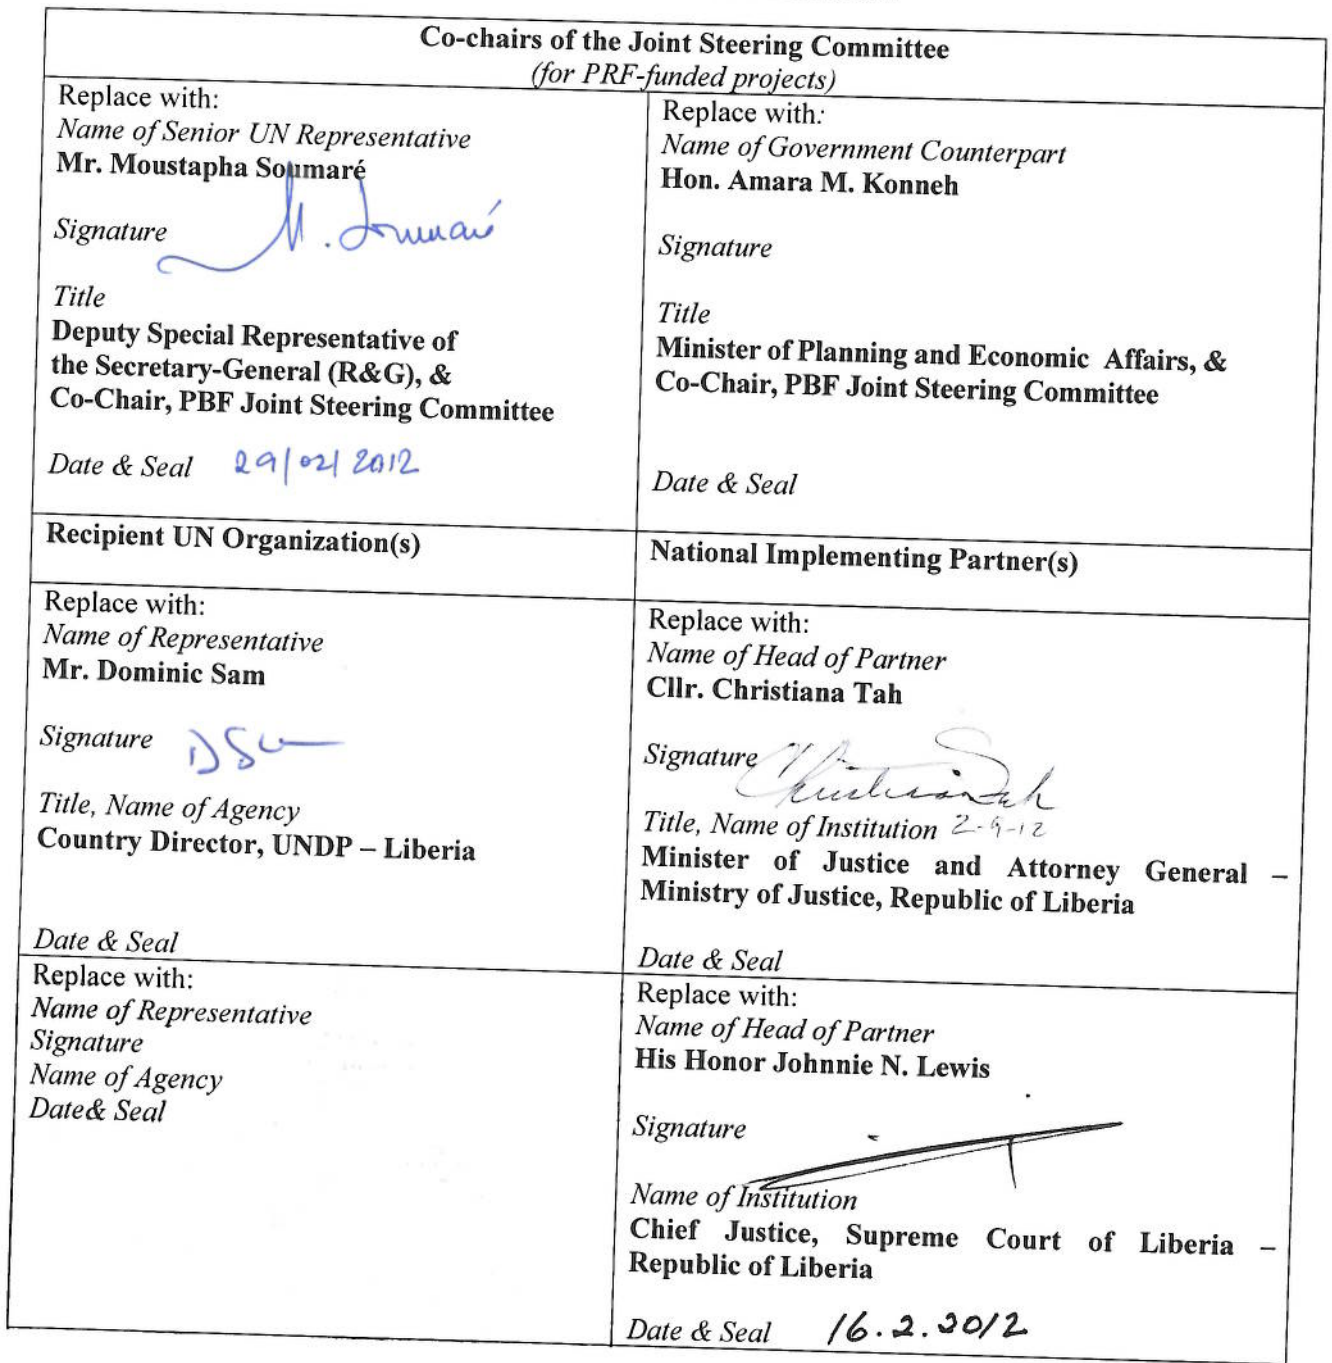 Co-chairs of the Joint Steering Committee
(for PRF-funded projects)
Replace with:
Name of Senior UN Representative
Mr. Moustapha Soumaré
Signature M. Soumaré
Title
Deputy Special Representative of
the Secretary-General (R&G), &
Co-Chair, PBF Joint Steering Committee
Date & Seal 29/02/2012
Replace with:
Name of Government Counterpart
Hon. Amara M. Konneh
Signature
Title
Minister of Planning and Economic Affairs, &
Co-Chair, PBF Joint Steering Committee
Date & Seal
Recipient UN Organization(s)
National Implementing Partner(s)
Replace with:
Name of Representative
Mr. Dominic Sam
Signature
Title, Name of Agency
Country Director, UNDP – Liberia
Date & Seal
Replace with:
Name of Head of Partner
Cllr. Christiana Tah
Signature Christiana Tah
Title, Name of Institution 2-9-12
Minister of Justice and Attorney General –
Ministry of Justice, Republic of Liberia
Date & Seal
Replace with:
Name of Representative
Signature
Name of Agency
Date& Seal
Replace with:
Name of Head of Partner
His Honor Johnnie N. Lewis
Signature
Name of Institution
Chief Justice, Supreme Court of Liberia –
Republic of Liberia
Date & Seal 16.2.2012